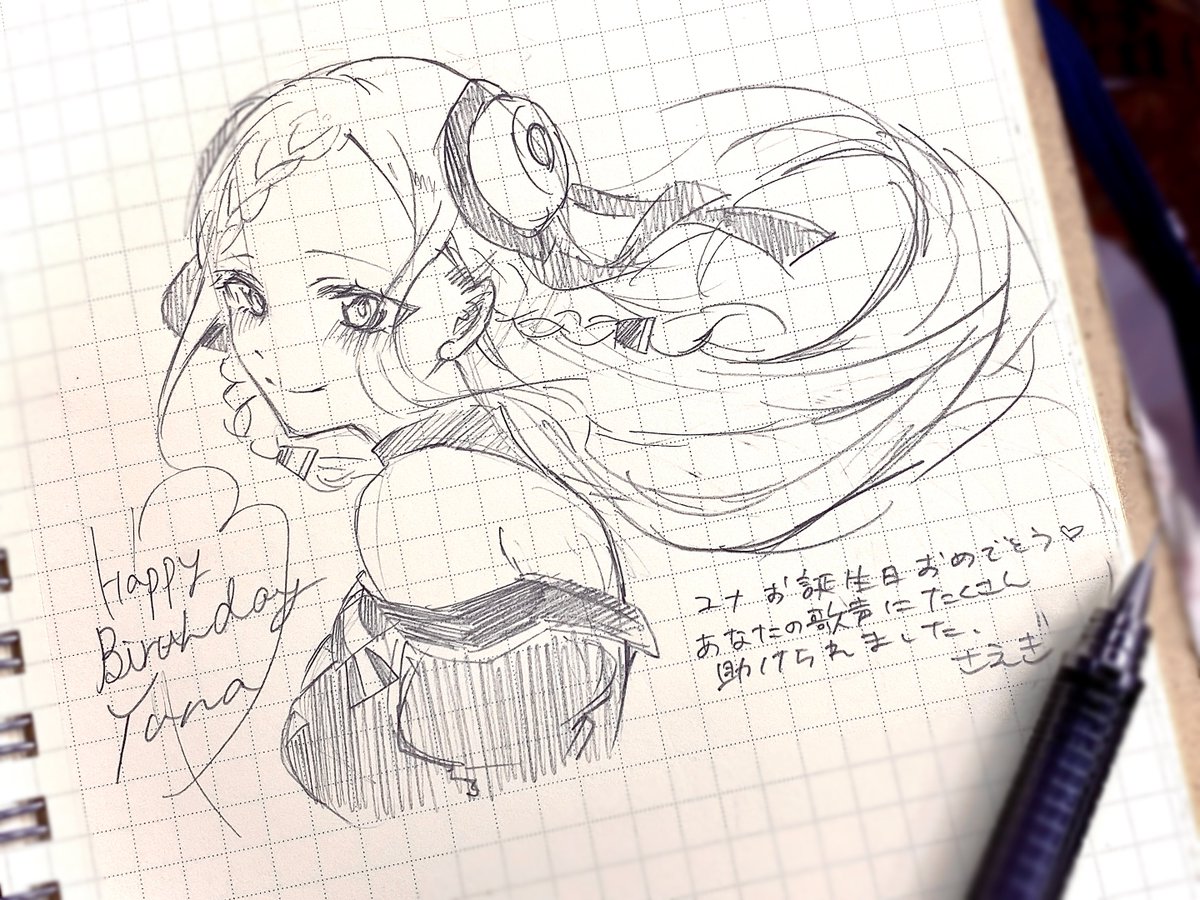 Happy
Birthday
Yuna
ユナ お誕生日おめでとう♡
あなたの歌声にたくさん
助けられました.
さえぎ